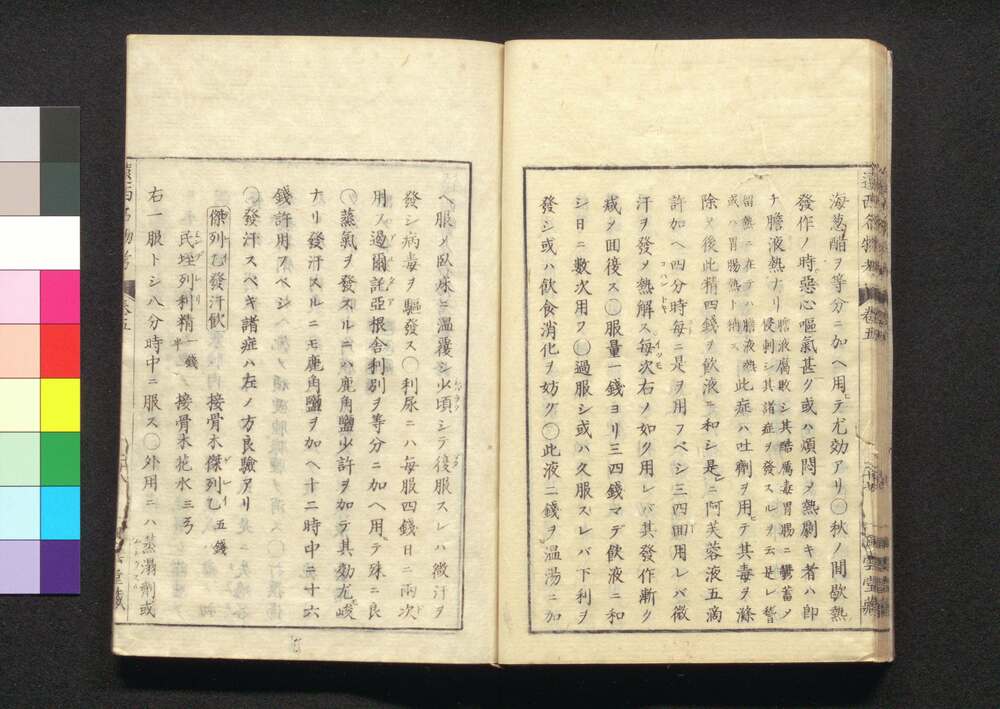 遠西名物考 卷五
海葱醋ヲ等分ニ加ヘ用テ尤効アリ〇秋ノ間歇熱
發作ノ時惡心嘔氣甚ク或ハ煩悶メ熱劇キ者ハ卽
チ膽液熱ナリ膽液腐敗シ其酷厲毒胃膓ニ鬱蓄メ侵刺シ其諸症ヲ發スルヲ云是レ
或ハ胃腸熱ト此症ハ吐劑ヲ用テ其毒ヲ滌
除メ後此精四錢ヲ飮液ニ和シ是ニ阿芙蓉液五滴
許加ヘ四分時每ニ是ヲ用フベシ三四回用レバ微
汗ヲ發メ熱解ス每次右ノ如ク用レバ其發作漸ク
減メ回復ス〇服量一錢ヨリ三四錢マデ飮液ニ和
シ日ニ數次用フ〇過服シ或ハ久服スレバ下利ヲ
發シ或ハ飮食消化ヲ妨ク〇此液二錢ヲ温湯ニ加
ヘ服メ臥床ニ温覆シ少頃シテ後服スレハ微汗ヲ
發シ病毒ヲ驅發ス〇利尿ニハ每服四錢日ニ兩次
用ス過爾託亞根舍利別ヲ等分ニ加ヘ用テ殊ニ良
〇蒸氣ヲ發スルニハ鹿角鹽少許ヲ加テ其効尤峻
ナリ發汗スルニモ鹿角鹽ヲ加ヘ十二時中ニ十六
錢許用フベシ
〇發汗スベキ諸症ハ左ノ方良驗アリ
傑列乙發汗飮 接骨木傑列乙五錢
民垤列利精一錢半 接骨木花水三弓
右一服トシ八分時中ニ服ス〇外用ニハ蒸溻劑或